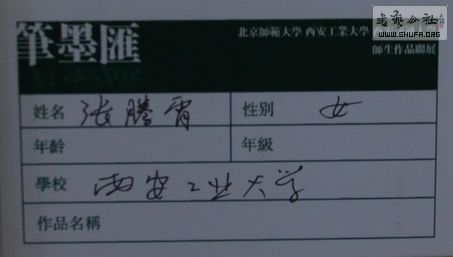 筆墨匯
北京師範大學 西安工業大學
師生作品聯展
WWW.SHUFA.ORG
姓名 张騰霄 性別 女
年齡 年級
學校 西安工业大学
作品名稱